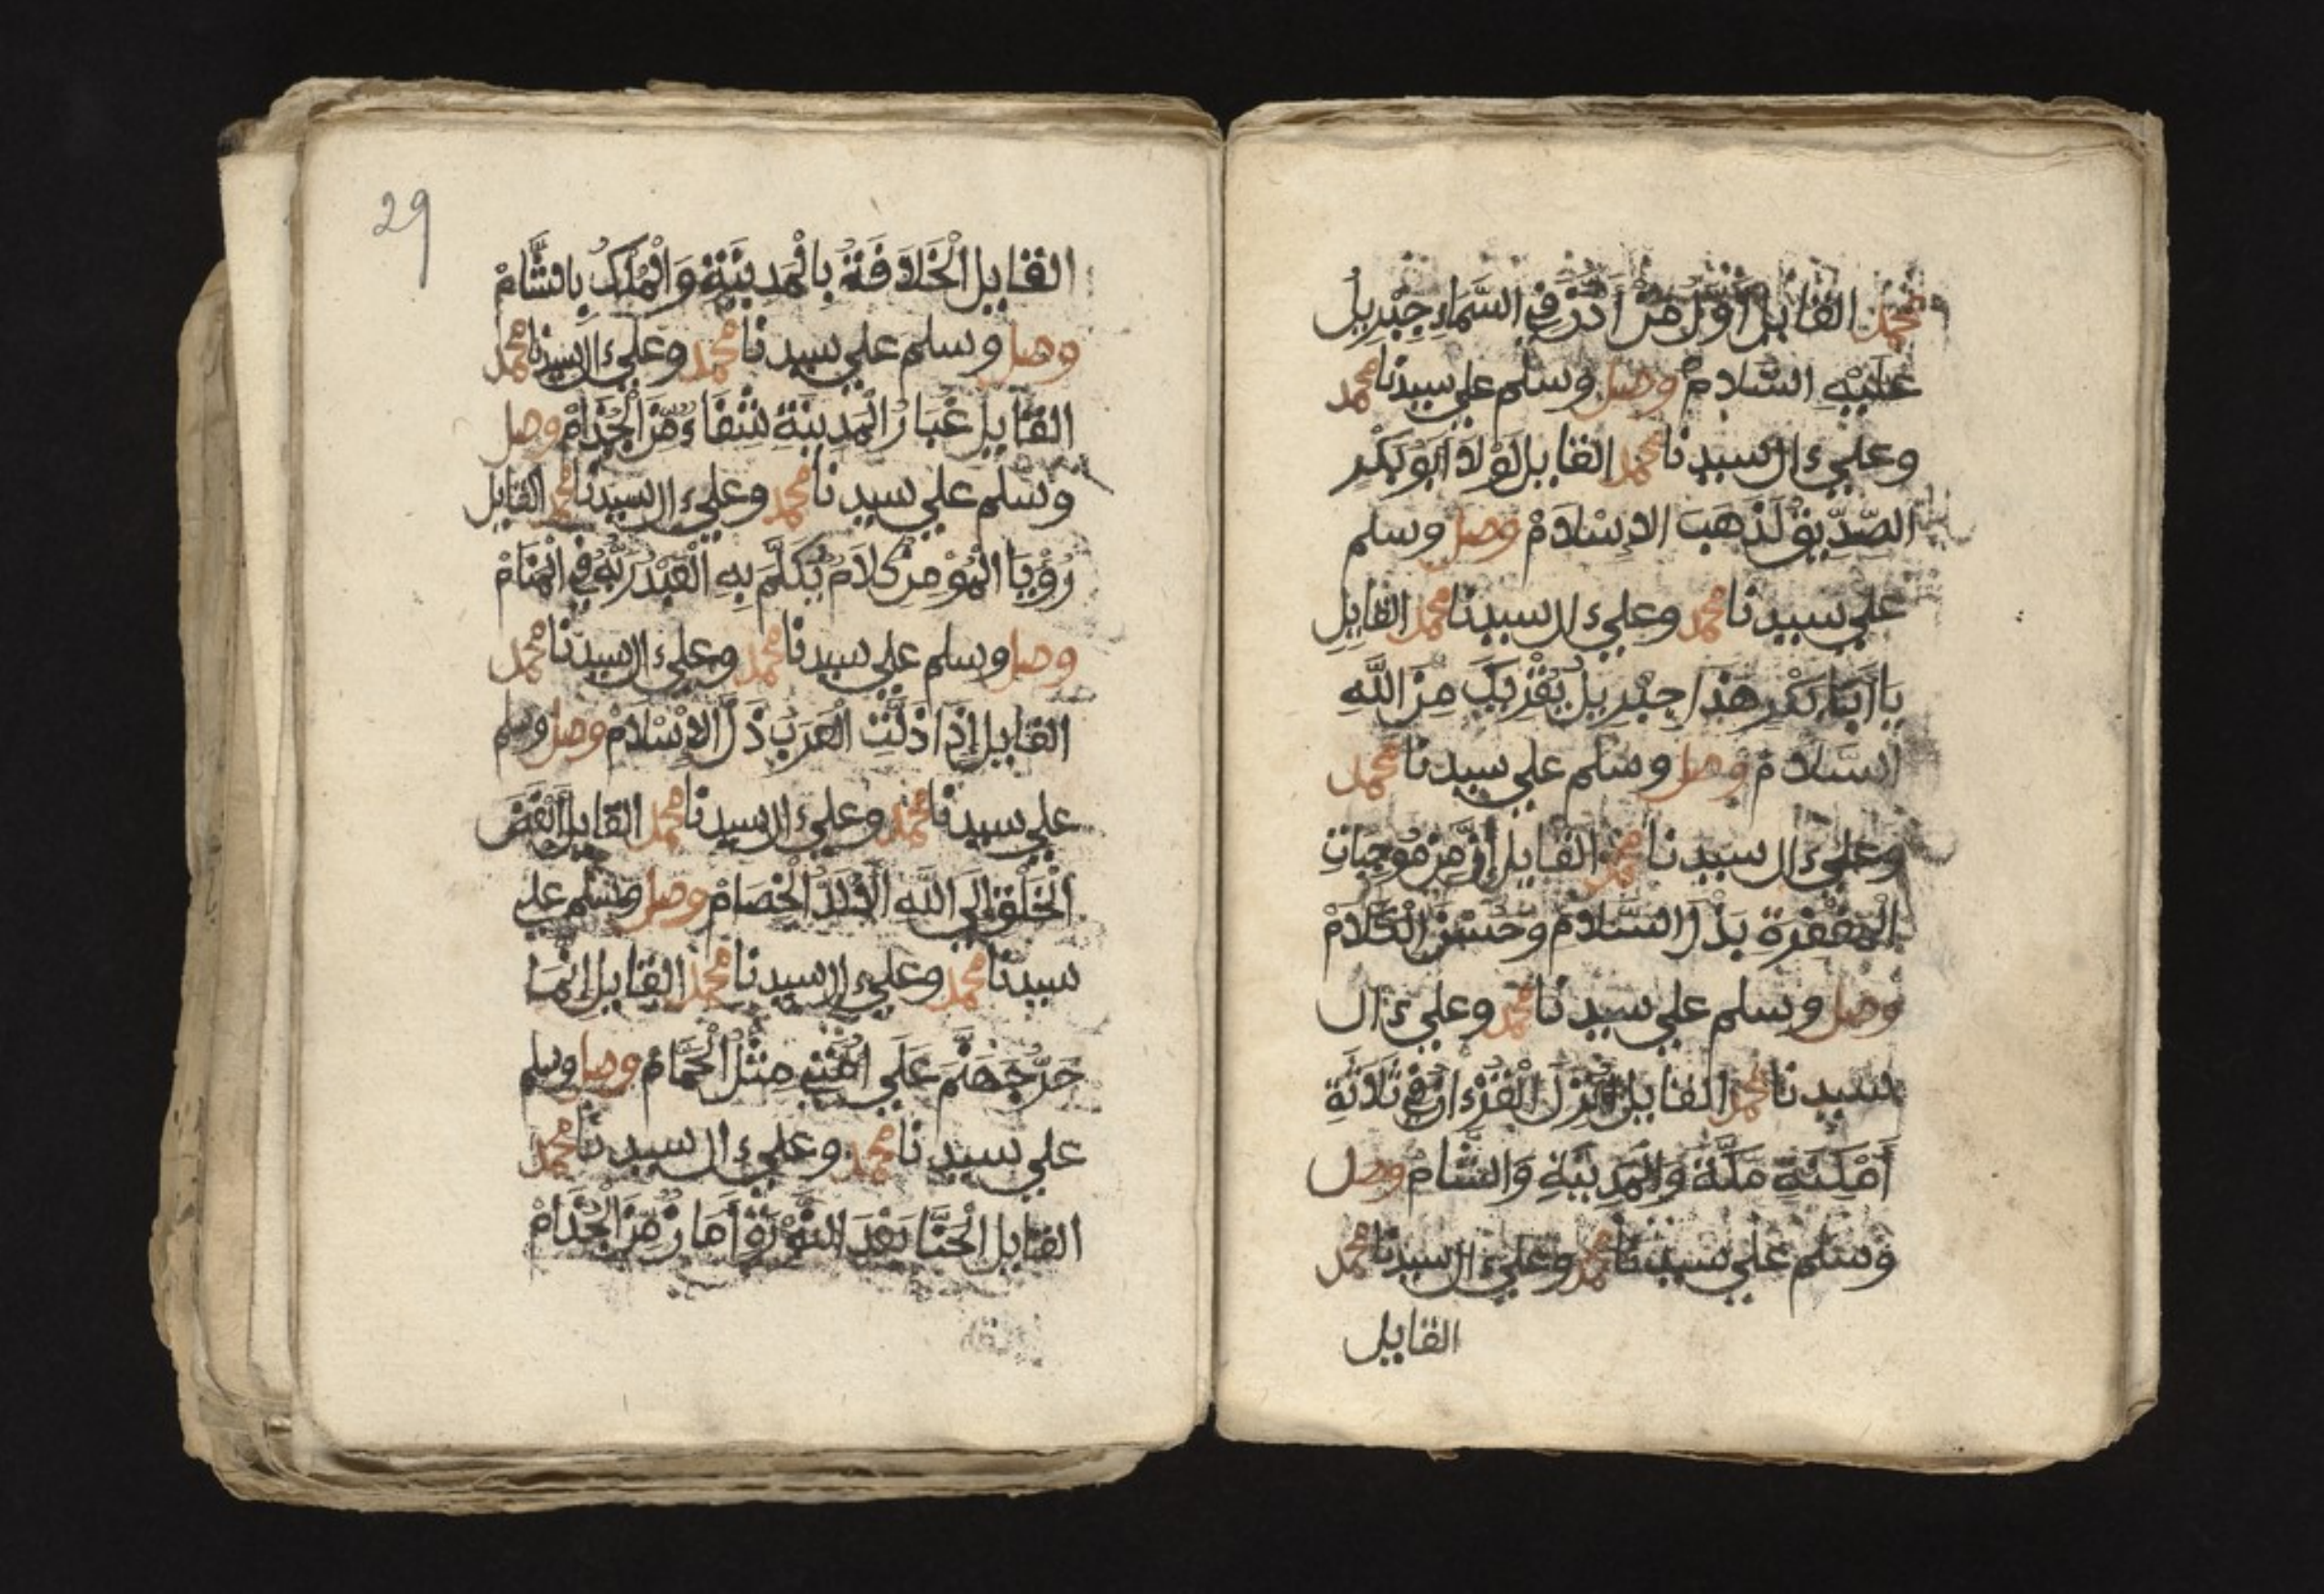 محمد القايل أَوَّلُ مَنْ أَذَّنَ فِي السَّمَاءِ جِبْرِيلُ
عَلَيْهِ السَّلَامْ وصل وسلم علي سيدنا محمد
وعلي ءال سيدنا محمد القايل لَوْلَا أَبُو بَكْرٍ
الصِّدِّيقْ لَذَهَبَ الإِسْلَامْ وصل وسلم
علي سيدنا محمد وعلي ءال سيدنا محمد القايل
يَا أَبَا بَكْرٍ هَذَا جِبْرِيلُ يُقْرِيكَ مِنَ اللَّهِ
السَّلَامْ وصل وسلم علي سيدنا محمد
وعلي ءال سيدنا محمد القايل إِنَّ مِنْ مُوجِبَاتِ
الْمَغْفِرَةِ بَذْلَ السَّلَامْ وحُسْنَ الْكَلَامْ
وصل وسلم علي سيدنا محمد وعلي ءال
سيدنا محمد القايل أُنْزِلَ الْقُرْءَانُ فِي ثَلَاثَةِ
أَمْكِنَةٍ مَكَّةَ وَالْمَدِينَةِ وَالشَّامْ وصل
وسلم علي سيدنا محمد وعلي ءال سيدنا محمد
القايل
29
القايل الْخَلَافَةُ بِالْمَدِينَةِ وَالْمُلْكُ بِالشَّامْ
وصل وسلم علي سيدنا محمد وعلي ءال سيدنا محمد
القايل غُبَارُ الْمَدِينَةِ شِفَاءٌ مِّنَ الْجُذَامْ وصل
وسلم علي سيدنا محمد وعلي ءال سيدنا محمد القايل
رُؤْيَا الْمُؤْمِنِ كَلَامٌ يُكَلِّمُ بِهِ الْعَبْدُ رَبَّهُ فِي الْمَنَامْ
وصل وسلم علي سيدنا محمد وعلي ءال سيدنا محمد
القايل إِذَا ذَلَّتِ الْعَرَبُ ذَلَّ الإِسْلَامْ وصل وسلم
علي سيدنا محمد وعلي ءال سيدنا محمد القايل أَبْغَضُ
الْخَلْقِ إِلَي اللَّهِ الْأَلَدُّ الْخِصَامْ وصل وسلم علي
سيدنا محمد وعلي ءال سيدنا محمد القايل إِنَّمَا
حَرُّ جَهَنَّمَ عَلَي أُمَّتِي مِثْلُ الْحَمَّامْ وصل وسلم
علي سيدنا محمد وعلي ءال سيدنا محمد
القايل الْحِنَّا بَعْدَ النُّورَةِ أَمَانٌ مِّنَ الْجُذَامْ